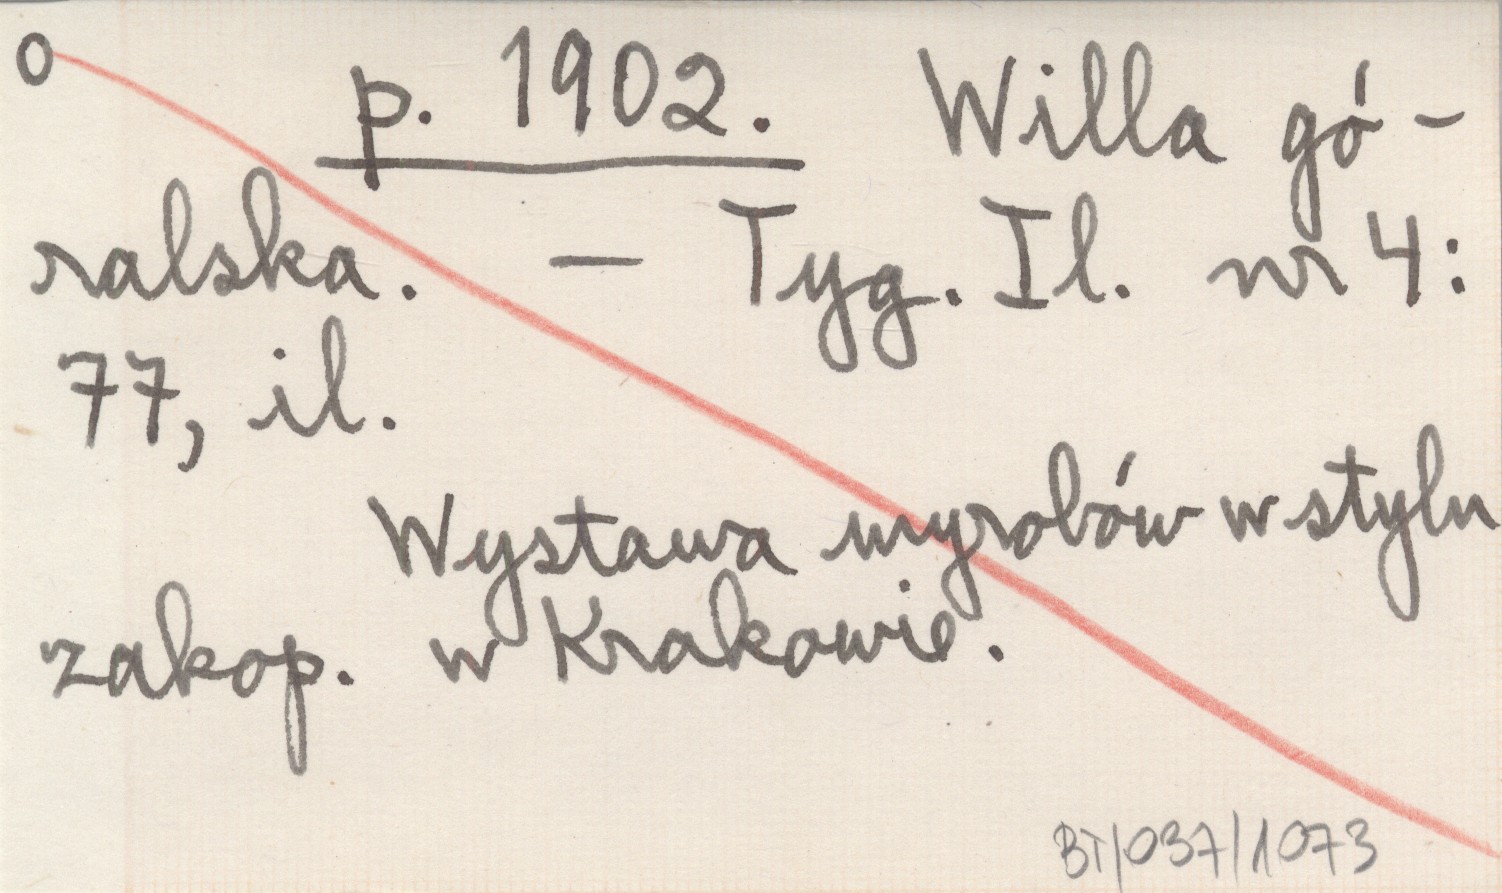 O
p. 1902. Willa gó-
ralska. — Tyg. Il. nr 4:
77, il.
Wystawa wyrobów w stylu
zakop. w Krakowie.
BT/037/1073